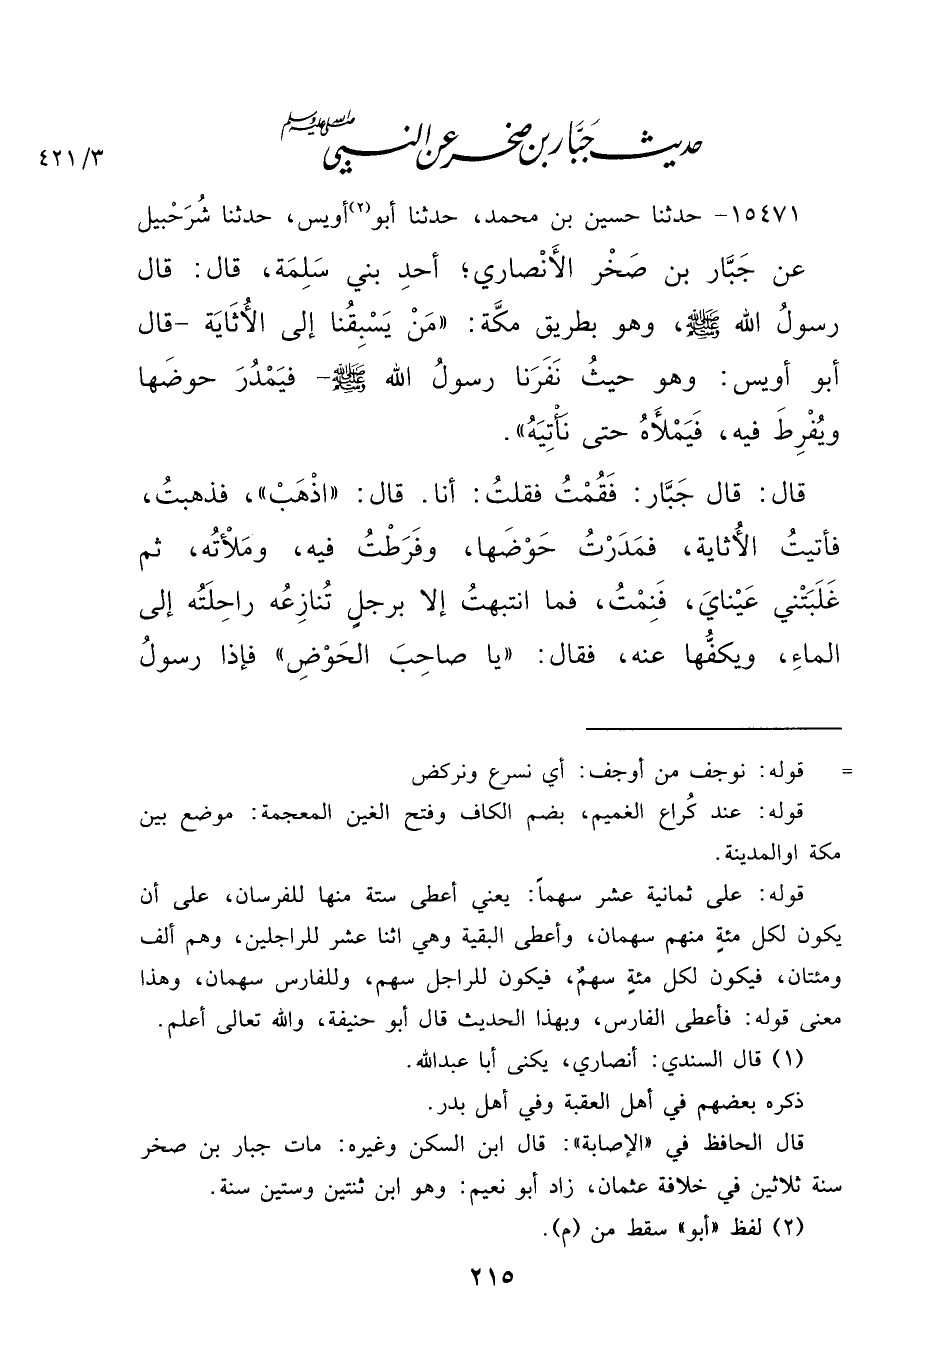 حديث جَبَّار بن صخر عن النبي صلى الله عليه وسلم
٤٢١/٣
١٥٤٧١- حدثنا حسين بن محمد، حدثنا أبو(٢)أويس، حدثنا شُرَحْبيل
عن جَبَّار بن صَخْر الأَنْصاري؛ أحدِ بني سَلِمَة، قال: قال
رسولُ الله ﷺ، وهو بطريق مكَّة: «مَنْ يَسْبِقُنا إلى الأُثَايَة -قال
أبو أويس: وهو حيثُ نَفَرَنا رسولُ الله ﷺ- فيَمْدُرَ حوضَها
ويُفْرِطَ فيه، فَيَمْلأَهُ حتى نَأْتِيَهُ».
قال: قال جَبَّار: فَقُمْتُ فقلتُ: أنا. قال: «اذْهَبْ»، فذهبتُ،
فأتيتُ الأُثاية، فمَدَرْتُ حَوْضَها، وفَرَطْتُ فيه، ومَلأْتُه، ثم
غَلَبَتْني عَيْنايَ، فَنِمْتُ، فما انتبهتُ إلا برجلٍ تُنازِعُه راحِلَتُه إلى
الماءِ، ويكفُّها عنه، فقال: «يا صاحِبَ الحَوْضِ» فإذا رسولُ
= قوله: نوجف من أوجف: أي نسرع ونركض
قوله: عند كُراع الغميم، بضم الكاف وفتح الغين المعجمة: موضع بين
مكة اوالمدينة.
قوله: على ثمانية عشر سهماً: يعني أعطى ستة منها للفرسان، على أن
يكون لكل مئةٍ منهم سهمان، وأعطى البقية وهي اثنا عشر للراجلين، وهم ألف
ومئتان، فيكون لكل مئةٍ سهمٌ، فيكون للراجل سهم، وللفارس سهمان، وهذا
معنى قوله: فأعطى الفارس، وبهذا الحديث قال أبو حنيفة، والله تعالى أعلم.
(١) قال السندي: أنصاري، يكنى أبا عبدالله.
ذكره بعضهم في أهل العقبة وفي أهل بدر.
قال الحافظ في «الإصابة»: قال ابن السكن وغيره: مات جبار بن صخر
سنة ثلاثين في خلافة عثمان، زاد أبو نعيم: وهو ابن ثنتين وستين سنة.
(٢) لفظ «أبو» سقط من (م).
٢١٥